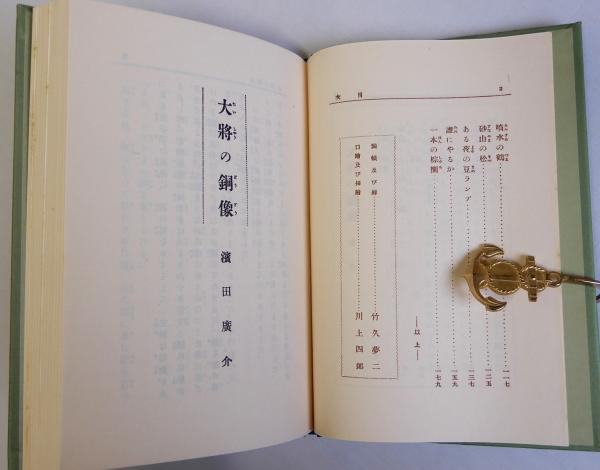 目次
噴水の鶴……一一七
砂山の松……一二五
ある夜の豆ランプ……一三七
誰にやるか……一五九
一本の棕櫚……一七九
――以上――
裝幀及び扉……竹久夢二
口繪及び插繪……川上四郎
大將の銅像
濱田廣介